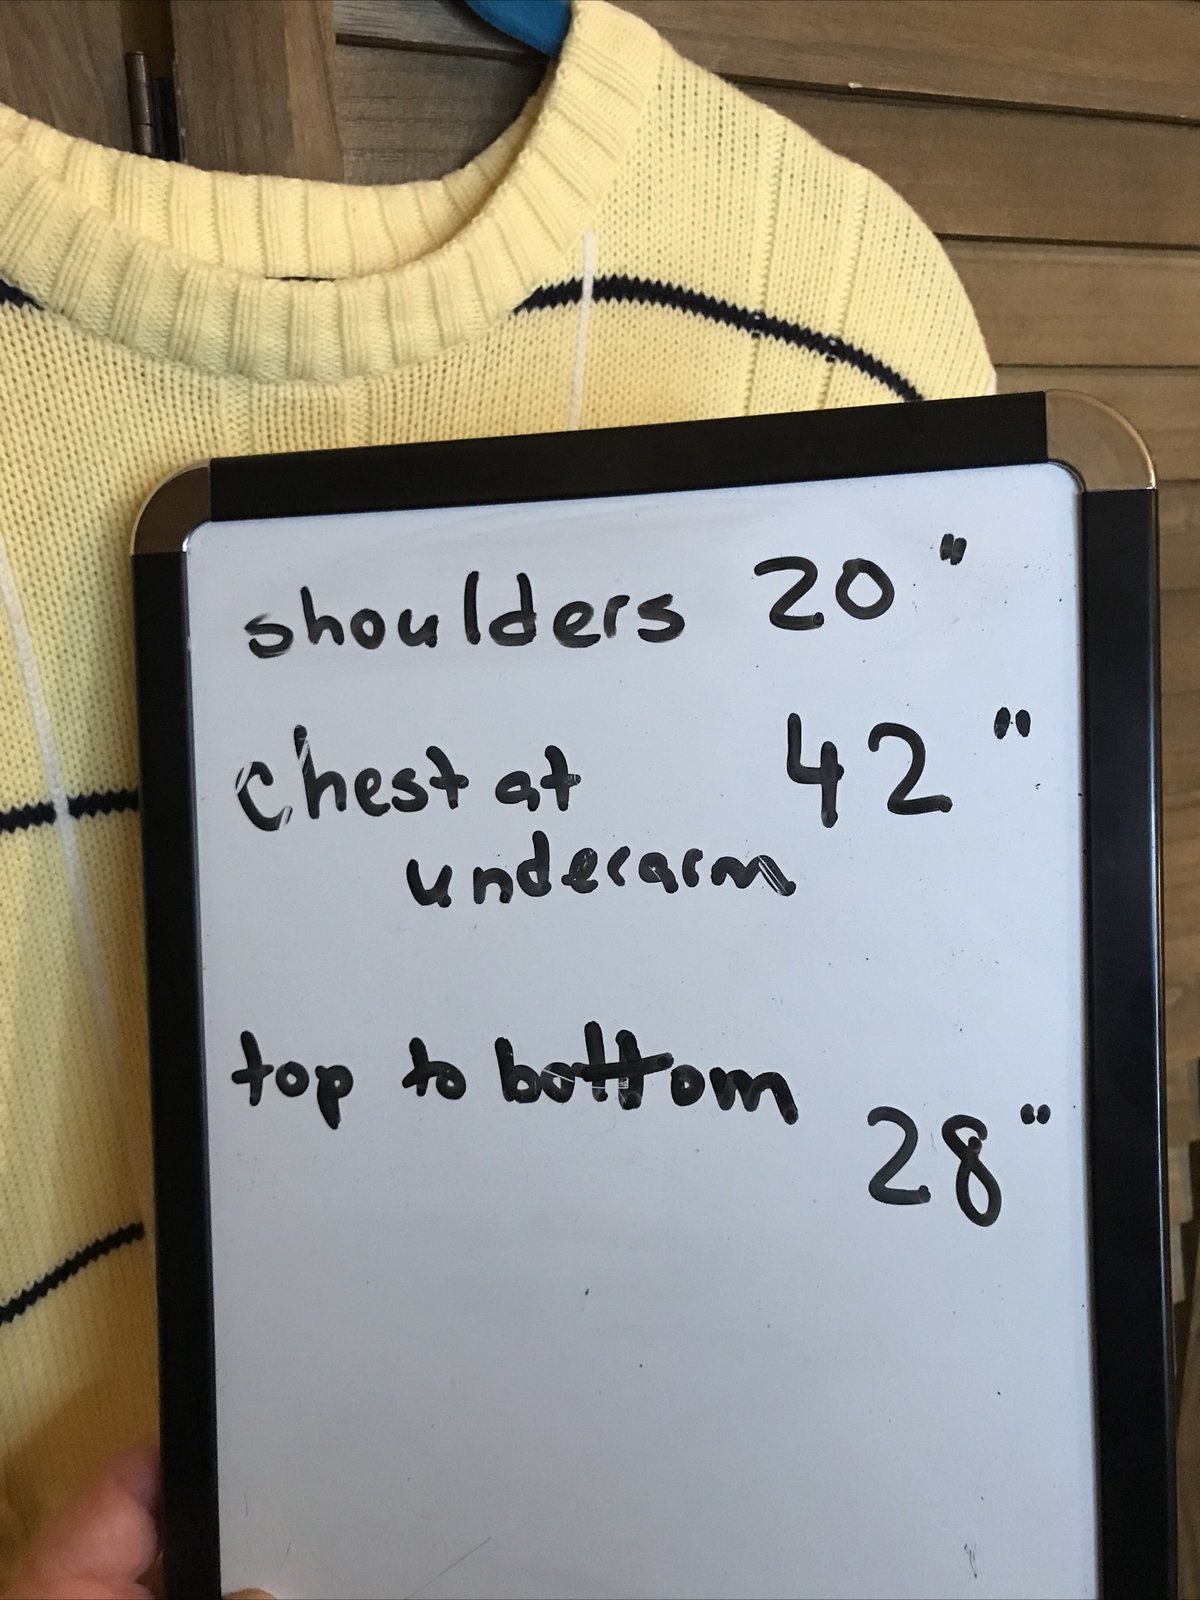 shoulders 20"
chest at 42"
underarm
top to bottom
28"